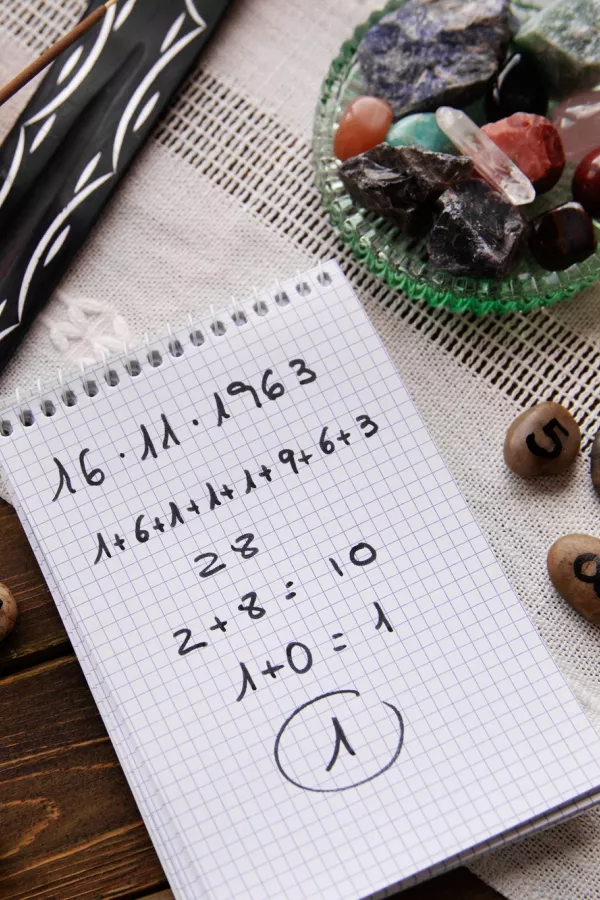 16.11.1963
1+6+1+1+1+9+6+3
28
2+8=10
1+0=1
1
5